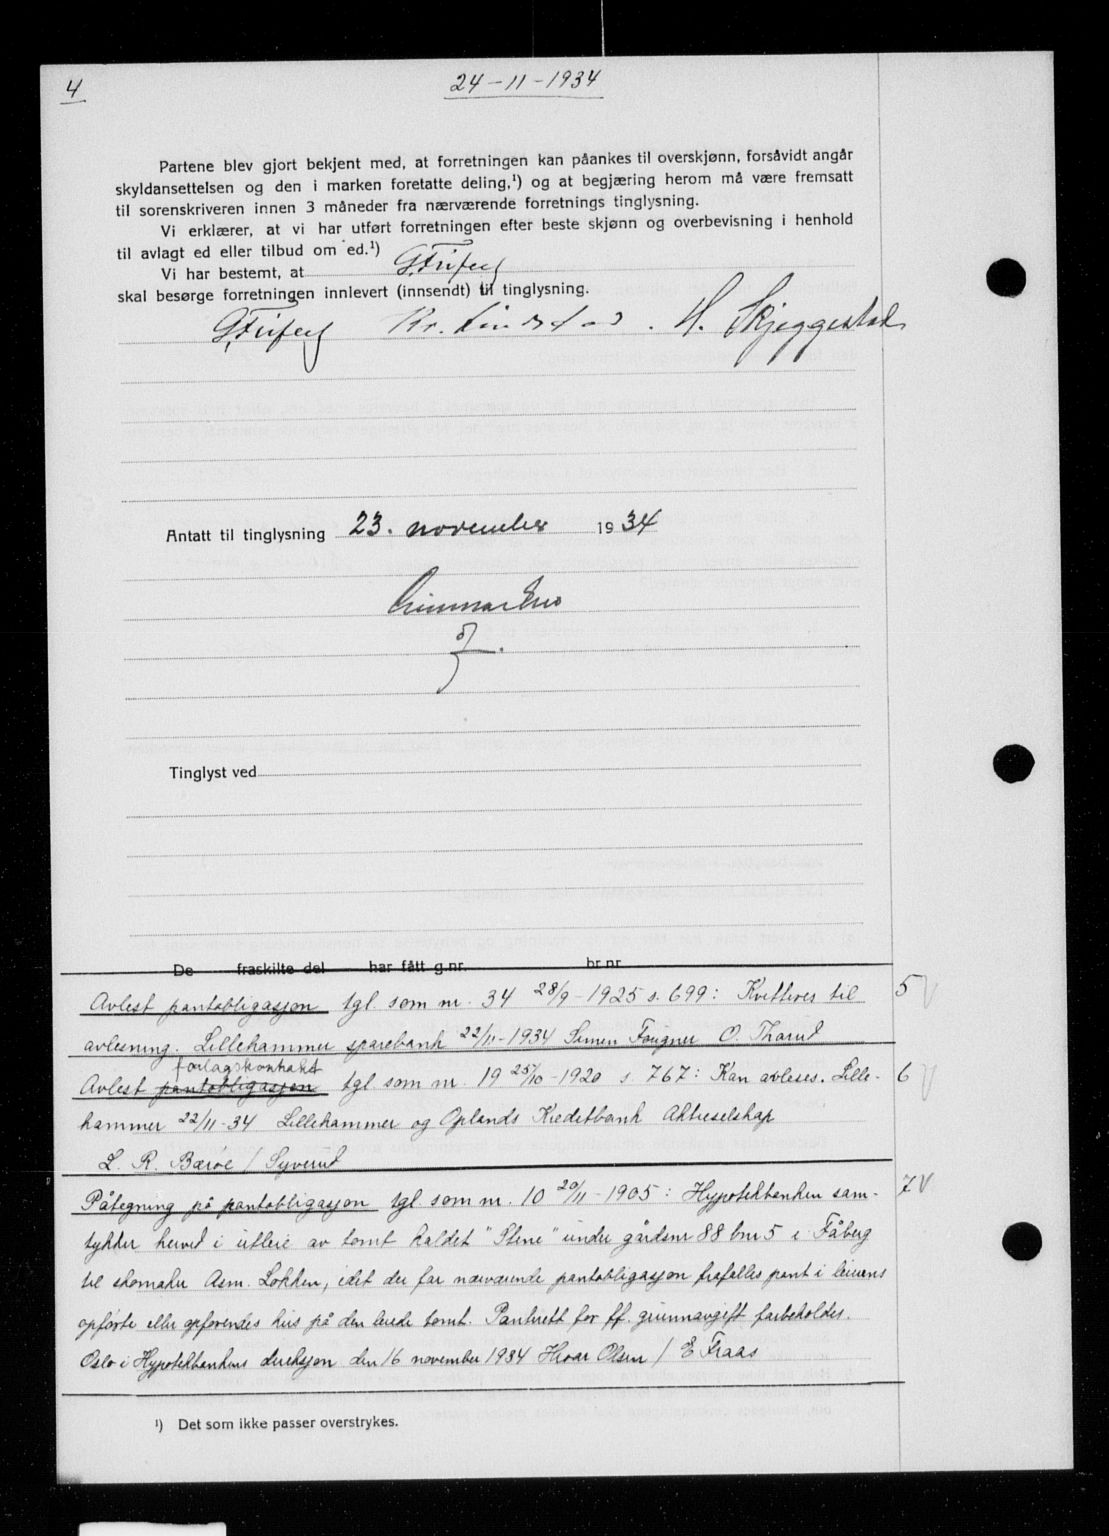 4
24-11-1934
Partene blev gjort bekjent med, at forretningen kan påankes til overskjønn, forsåvidt angår
skyldansettelsen og den i marken foretatte deling,¹) og at begjæring herom må være fremsatt
til sorenskriveren innen 3 måneder fra nærværende forretnings tinglysning.
Vi erklærer, at vi har utført forretningen efter beste skjønn og overbevisning i henhold
til avlagt ed eller tilbud om ed.¹)
Vi har bestemt, at
skal besørge forretningen innlevert (innsendt) til tinglysning.
Kr. Lindstad. H. Skjeggestad
Antatt til tinglysning 23. november 1934
Tinglyst ved
De fraskilte del har fått g.nr. br.nr.
Avlest pantobligasjon tgl som nr. 34 28/9-1925 s. 699: Kvitteres til 5
avlesning. Lillehammer sparebank 22/11-1934 Simen Fougner O. Thorud
forlagskontrakt
Avlest pantobligasjon tgl som nr. 19 25/10-1920 s. 767: Kan avleses. Lille- 6
hammer 22/11-34 Lillehammer og Oplands Kreditbank Aktieselskap
L. R. Bæröe / Syverud
Påtegning på pantobligasjon tgl som nr. 10 20/11-1905: Hypotekbanken sam- 7
tykker herved i utleie av tomt kaldet "Stene" under gårdsnr 88 bnr 5 i Fåberg
til skomaker Asm. Løkken, idet der for nærværende pantobligasjon frafalles pant i leierens
opførte eller opførendes hus på den leiede tomt. Panterett for ff. grunnavgift forbeholdes.
Oslo i Hypotekbankens direksjon den 16 november 1934 Hroar Olsen / E Fraas
¹) Det som ikke passer overstrykes.